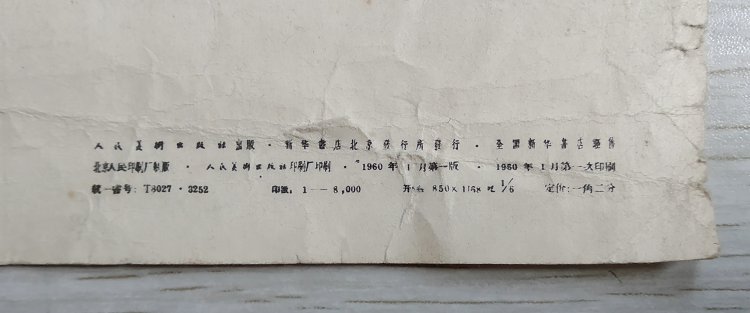 人民美術出版社出版 · 新华書店北京發行所發行 · 全国新华書店經售
北京人民印刷厂制版 · 人民美術出版社印刷厂印刷 · 1960 年 1 月第一版 · 1960 年 1 月第一次印刷
統一書号: T8027 · 3252 印数: 1—8,000 开本 850×1168 1/6 定价: 一角二分